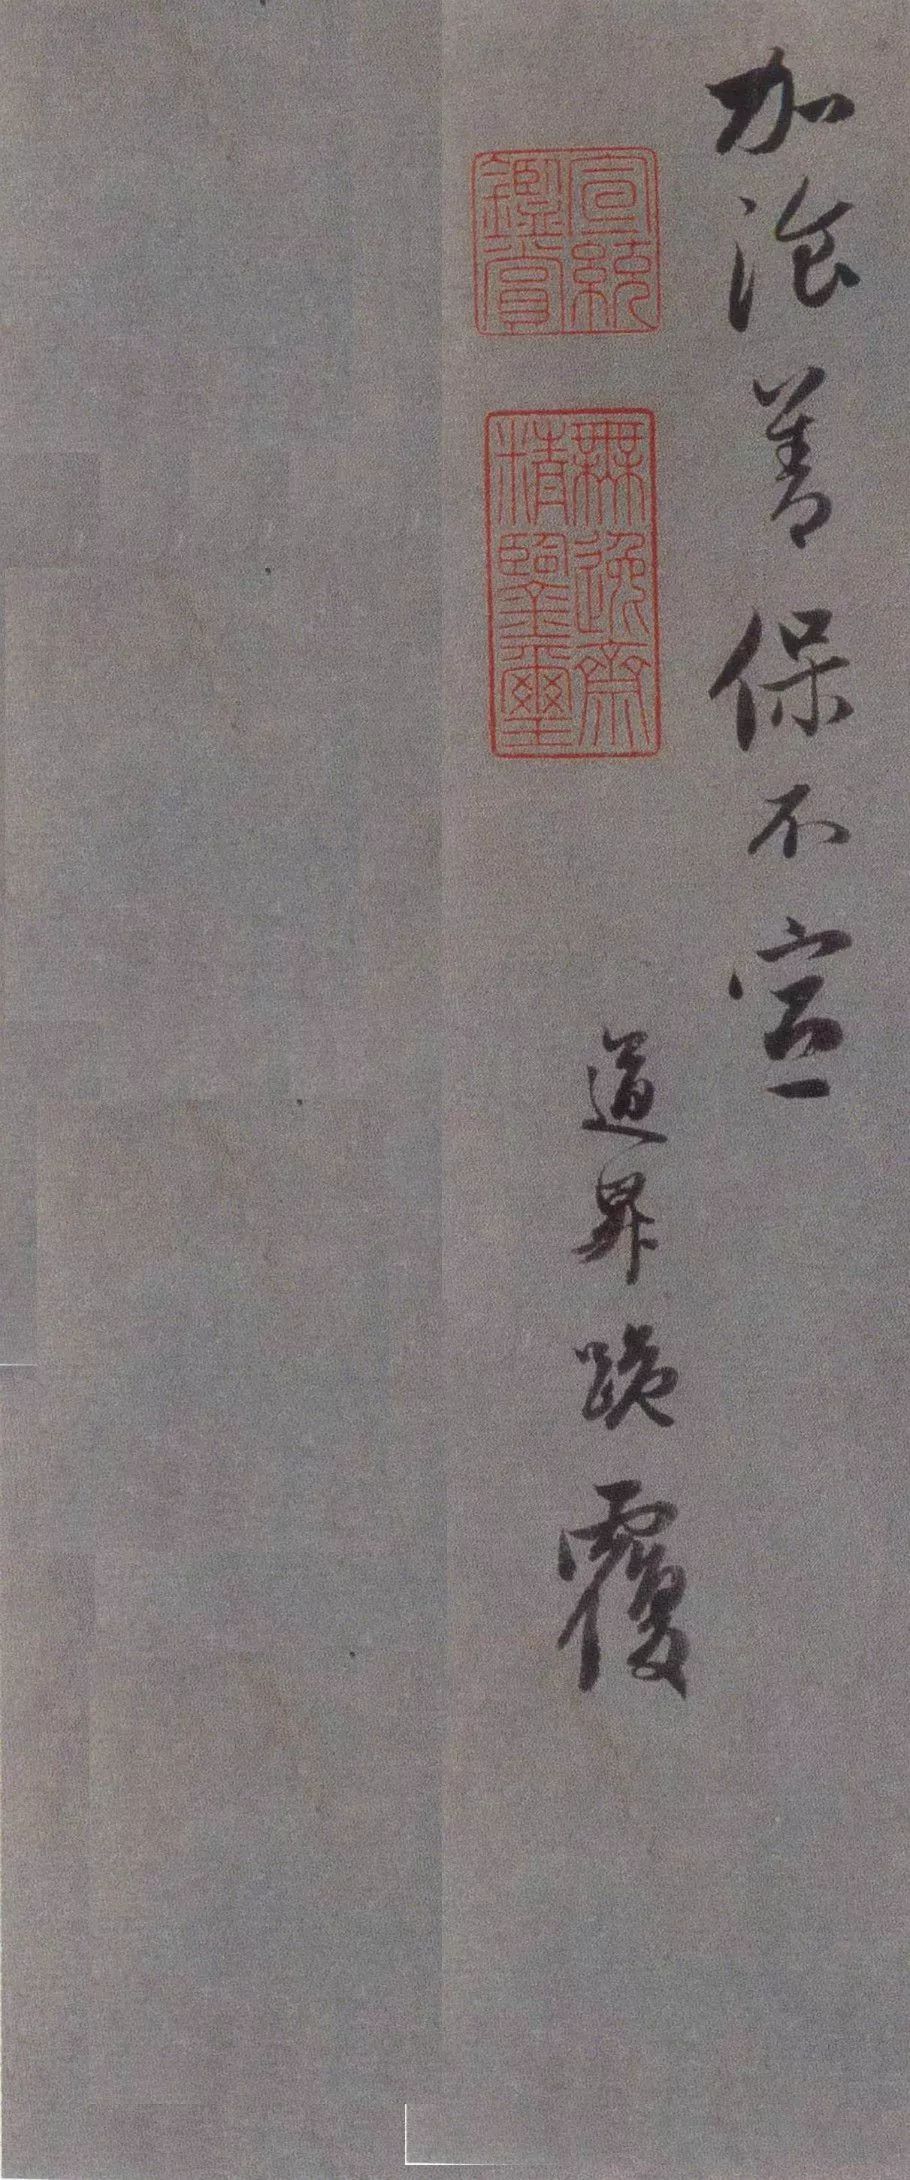 加湌善保不宣
道昇跪覆
宣統鑑賞
無逸齋精鑒璽